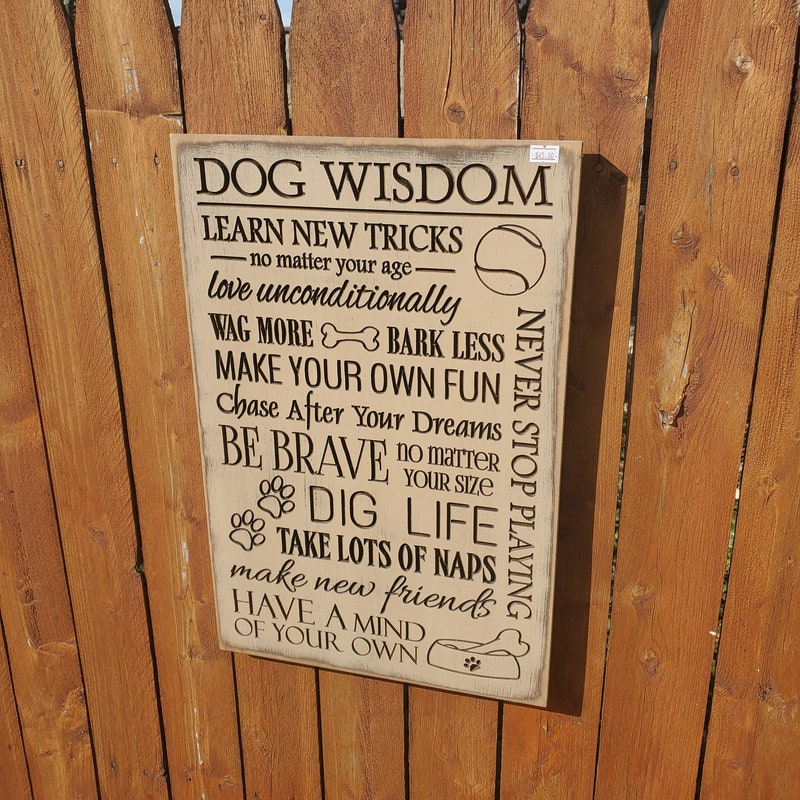 $45.00
DOG WISDOM
LEARN NEW TRICKS
no matter your age
love unconditionally
WAG MORE BARK LESS
MAKE YOUR OWN FUN
Chase After Your Dreams
BE BRAVE no matter
YOUR SIZE
DIG LIFE
TAKE LOTS OF NAPS
make new friends
HAVE A MIND
OF YOUR OWN
NEVER STOP PLAYING